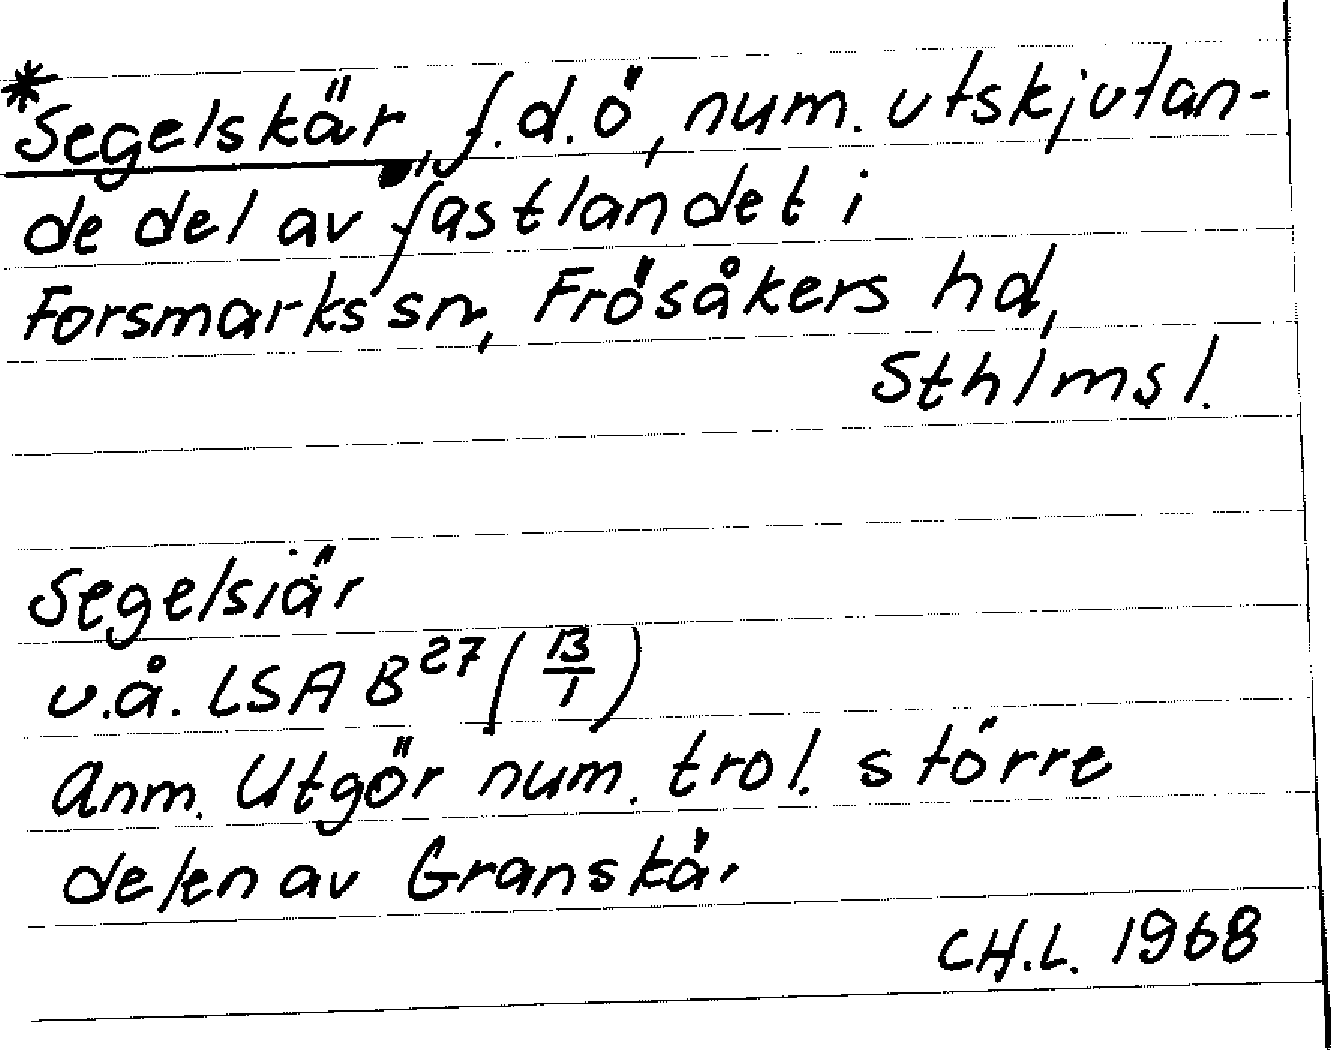 *Segelskär, f.d. ö, num. utskjutan-
de del av fastlandet i
Forsmarks sn, Frösåkers hd,
Sthlms l.
Segelsiär
u.å. LSA B27 (13/1)
Anm. Utgör num. trol. större
delen av Granskär
CH.L. 1968